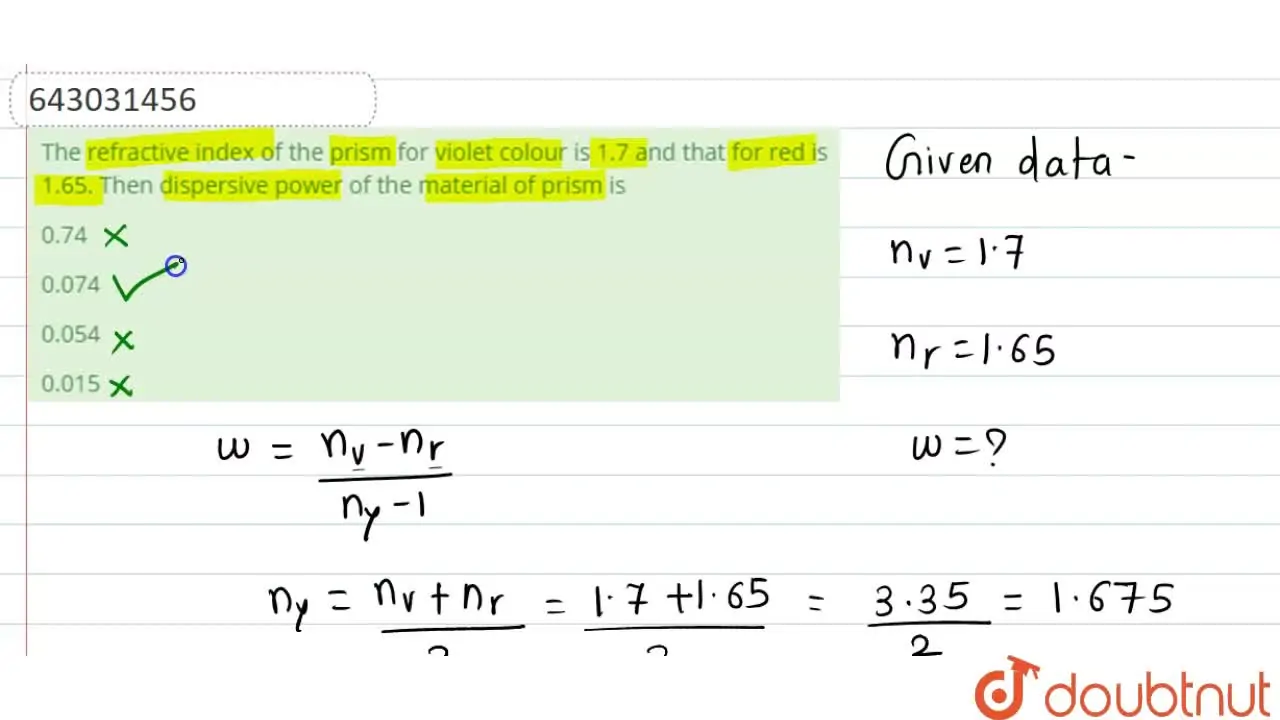 643031456
The refractive index of the prism for violet colour is 1.7 and that for red is
1.65. Then dispersive power of the material of prism is
0.74
0.074
0.054
0.015
Given data-
nv = 1.7
nr = 1.65
w = ?
w = nv - nr
ny - 1
ny = nv + nr = 1.7 + 1.65 = 3.35 = 1.675
2
doubtnut